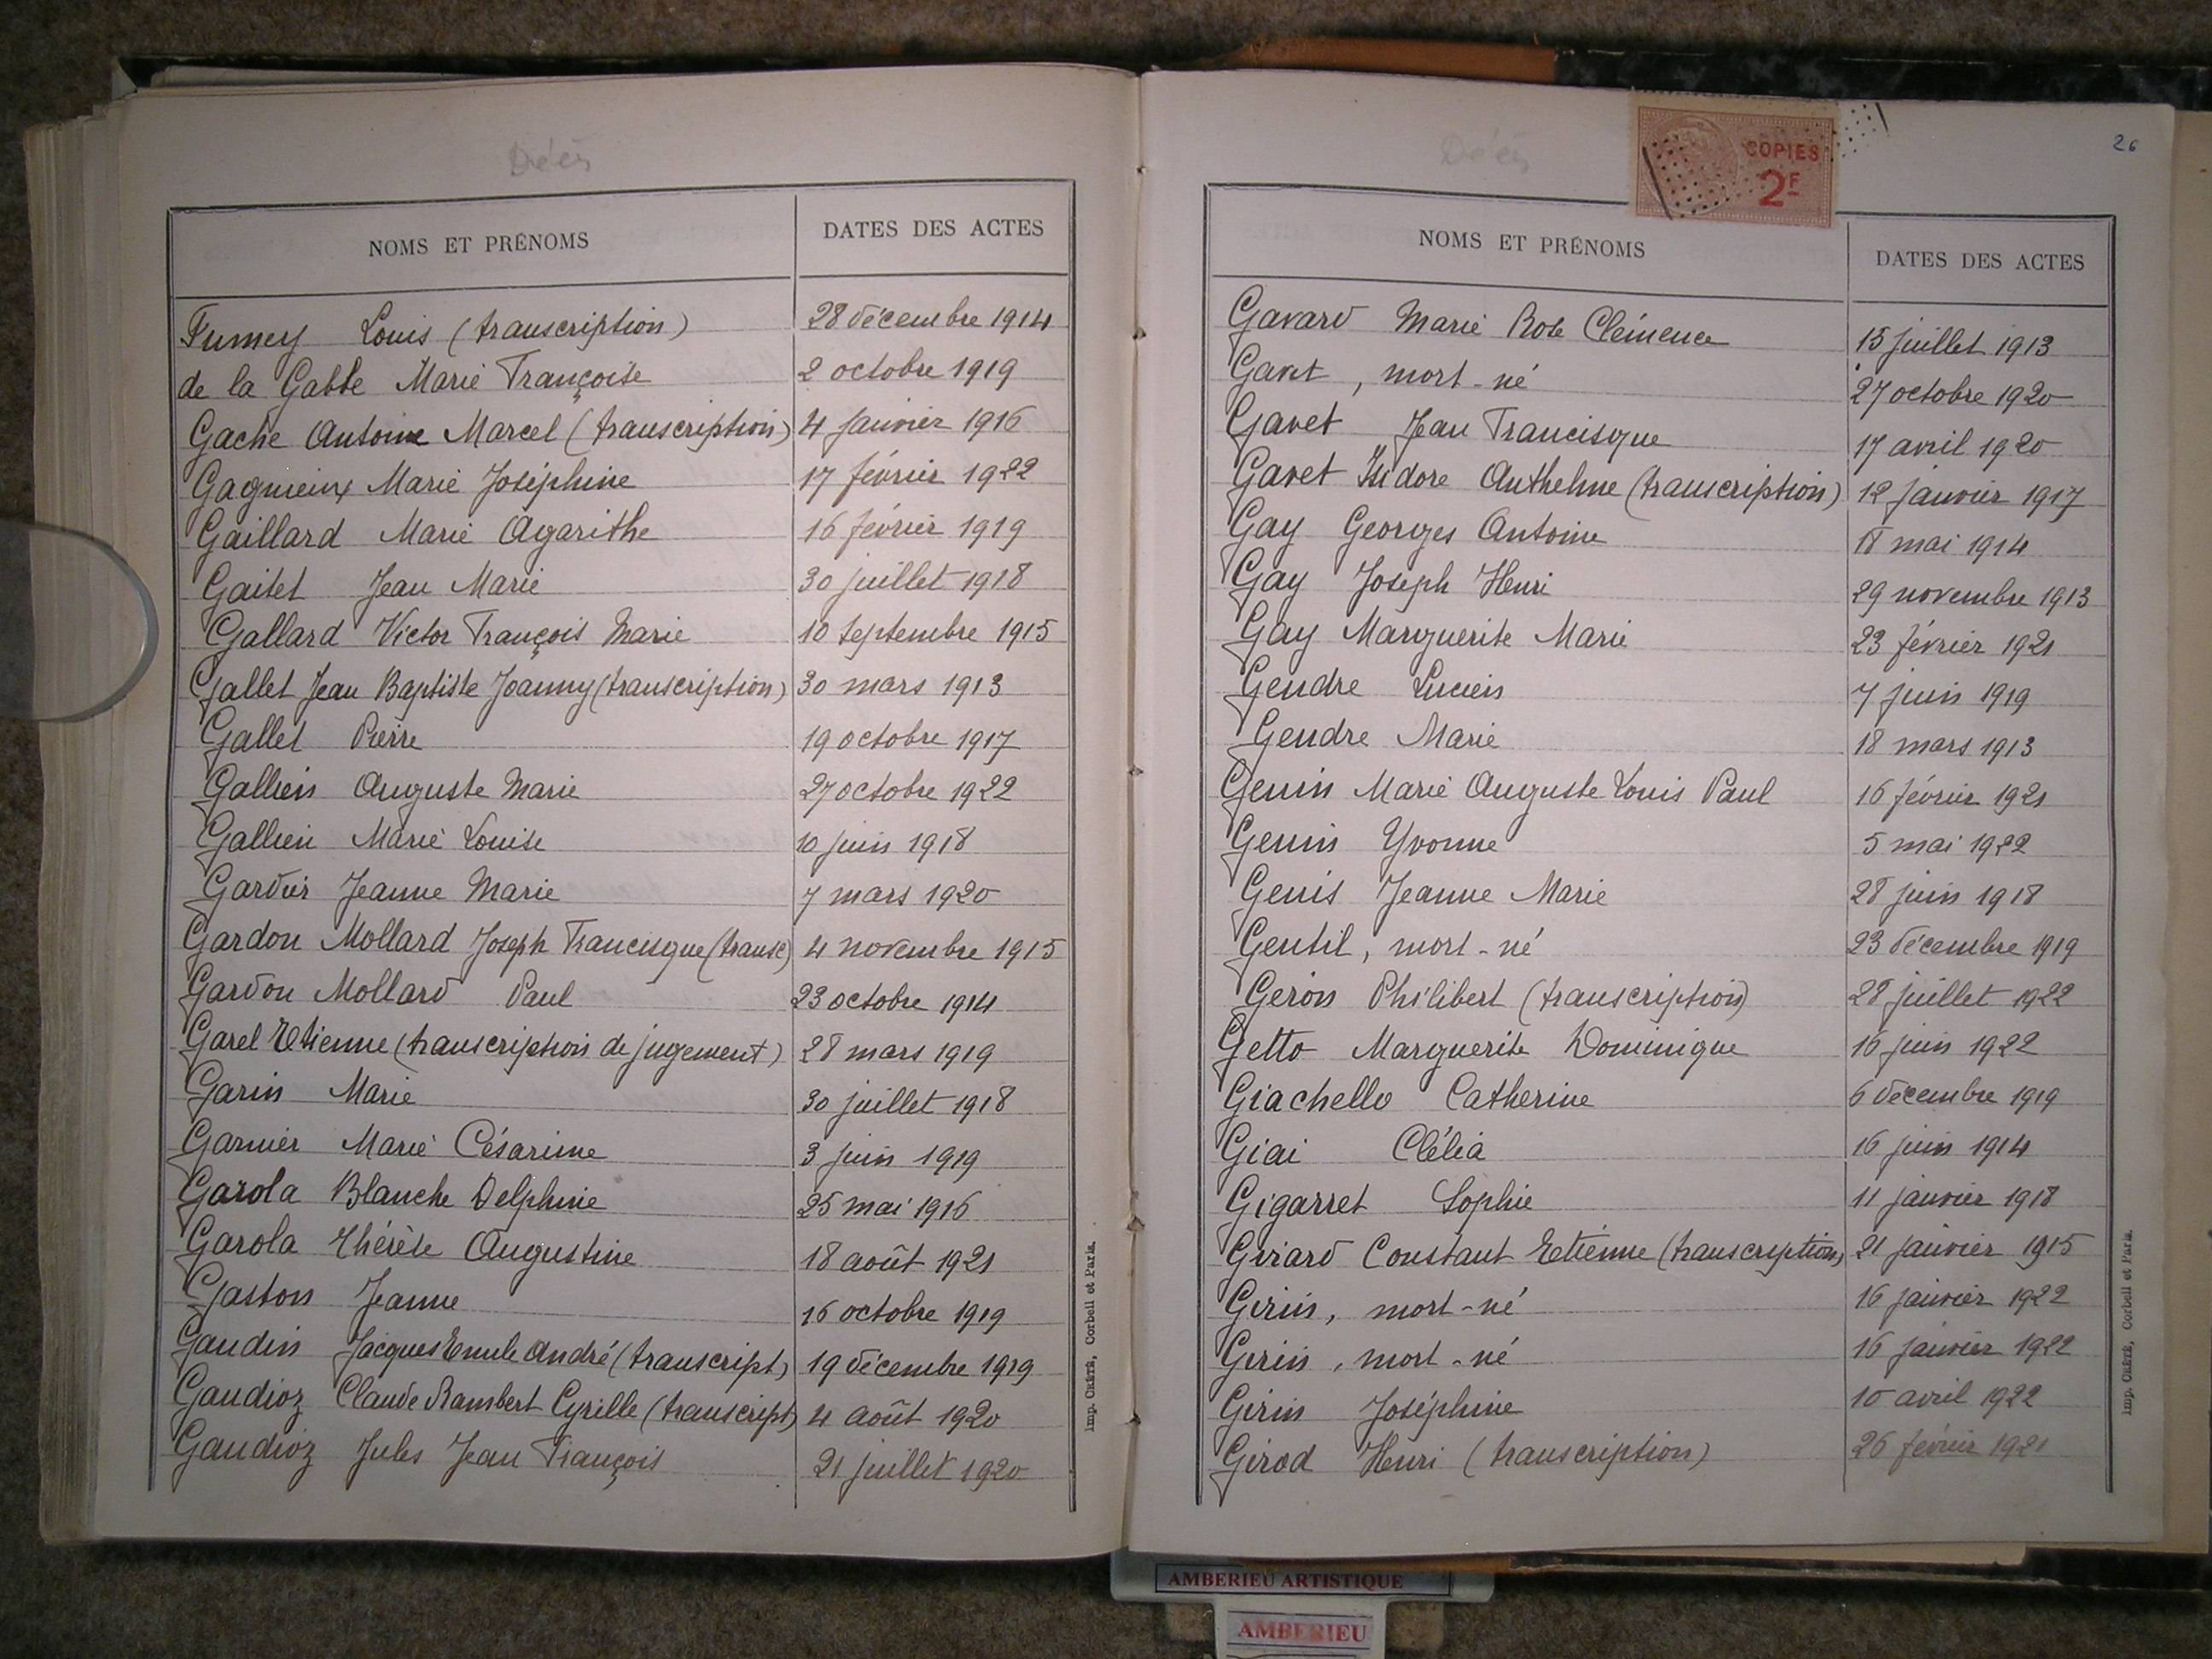 Décès
NOMS ET PRÉNOMS DATES DES ACTES
Fumey Louis (transcription) 28 décembre 1914
de la Gabbe Marie Françoise 2 octobre 1919
Gache Antoine Marcel (transcription) 4 janvier 1916
Gagnieux Marie Joséphine 17 février 1922
Gaillard Marie Agarithe 16 février 1919
Gaitet Jean Marie 30 juillet 1918
Gallard Victor François Marie 10 septembre 1915
Gallet Jean Baptiste Joanny (transcription) 30 mars 1913
Gallet Pierre 19 octobre 1917
Gallien Auguste Marie 27 octobre 1922
Gallien Marie Louise 10 juin 1918
Gardier Jeanne Marie 7 mars 1920
Gardon Mollard Joseph Francisque (transc) 4 novembre 1915
Gardon Mollard Paul 23 octobre 1914
Garel Etienne (transcription de jugement) 28 mars 1919
Garin Marie 30 juillet 1918
Garnier Marie Césarine 3 juin 1919
Garola Blanche Delphine 25 mai 1916
Garola Thérèse Augustine 18 août 1921
Gaston Jeanne 16 octobre 1919
Gaudin Jacques Emile André (transcript) 19 décembre 1919
Gaudioz Claude Rambert Cyrille (transcript) 4 août 1920
Gaudioz Jules Jean François 21 juillet 1920
Imp. CRÉTÉ, Corbeil et Paris.
Décès
COPIES
2F
26
NOMS ET PRÉNOMS DATES DES ACTES
Gavard Marie Rose Clémence 15 juillet 1913
Gavet, mort-né 27 octobre 1920
Gavet Jean Francisque 17 avril 1920
Gavet Isidore Anthelme (transcription) 12 janvier 1917
Gay Georges Antoine 18 mai 1914
Gay Joseph Henri 29 novembre 1913
Gay Marguerite Marie 23 février 1921
Gendre Lucien 7 juin 1919
Gendre Marie 18 mars 1913
Genin Marie Auguste Louis Paul 16 février 1921
Genin Yvonne 5 mai 1922
Genis Jeanne Marie 28 juin 1918
Gentil, mort-né 23 décembre 1919
Geron Philibert (transcription) 28 juillet 1922
Getto Marguerite Dominique 16 juin 1922
Giachello Catherine 6 décembre 1919
Giai Clélia 16 juin 1914
Gigarret Sophie 11 janvier 1918
Girard Constant Etienne (transcription) 21 janvier 1915
Girin, mort-né 16 janvier 1922
Girin, mort-né 16 janvier 1922
Girin Joséphine 10 avril 1922
Girod Henri (transcription) 26 février 1921
Imp. CRÉTÉ, Corbeil et Paris.
AMBERIEU ARTISTIQUE
AMBERIEU